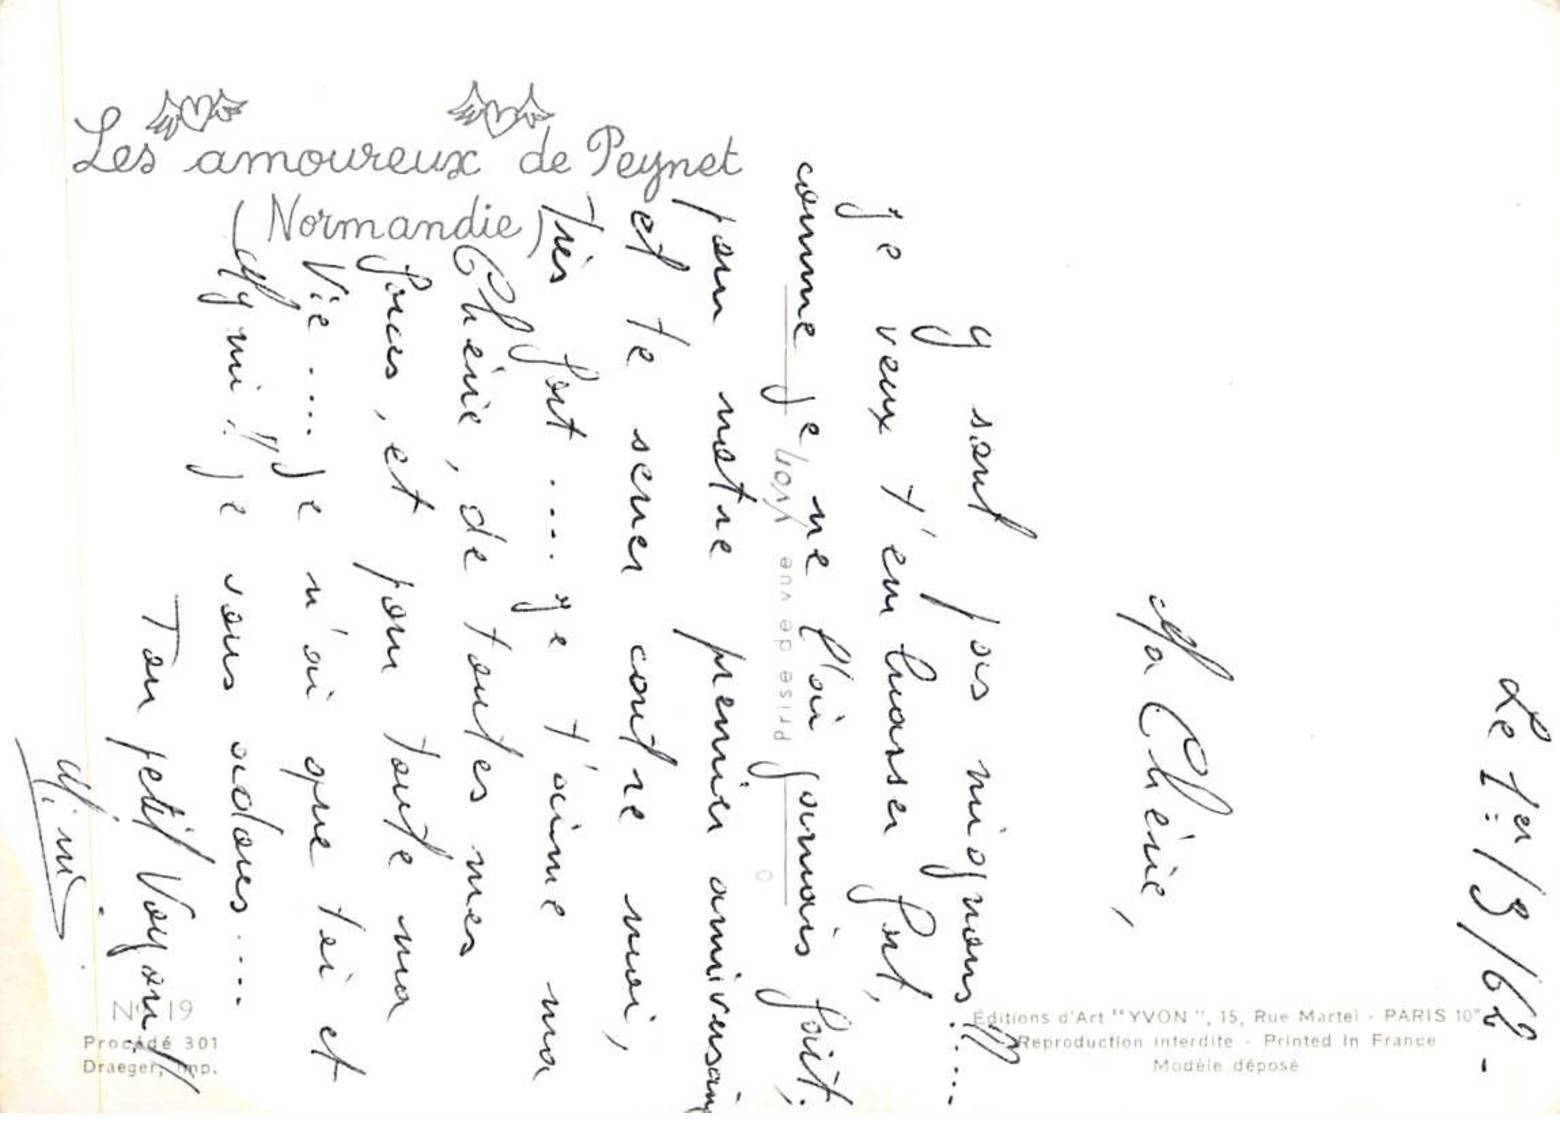 Les amoureux de Peynet
(Normandie)
Le 1er/9/62-
Ma Chérie,
y sont pas mignons!!!....
je veux t'embrasser fort,
comme je ne l'ai jamais fait,
pour notre premier anniversaire
et te serrer contre moi,
très fort.... ye t'aime ma
Chérie, de toutes mes
forces, et pour toute ma
Vie.... Je n'ai que toi et
Mymi!! Je vous adores....
Ton petit Voyou!!
Mimi.
Prise de vue Yvon
N° 19
Procédé 301
Draeger, imp.
Éditions d'Art "YVON", 15, Rue Martel - PARIS 10e
Reproduction interdite - Printed in France
Modèle déposé